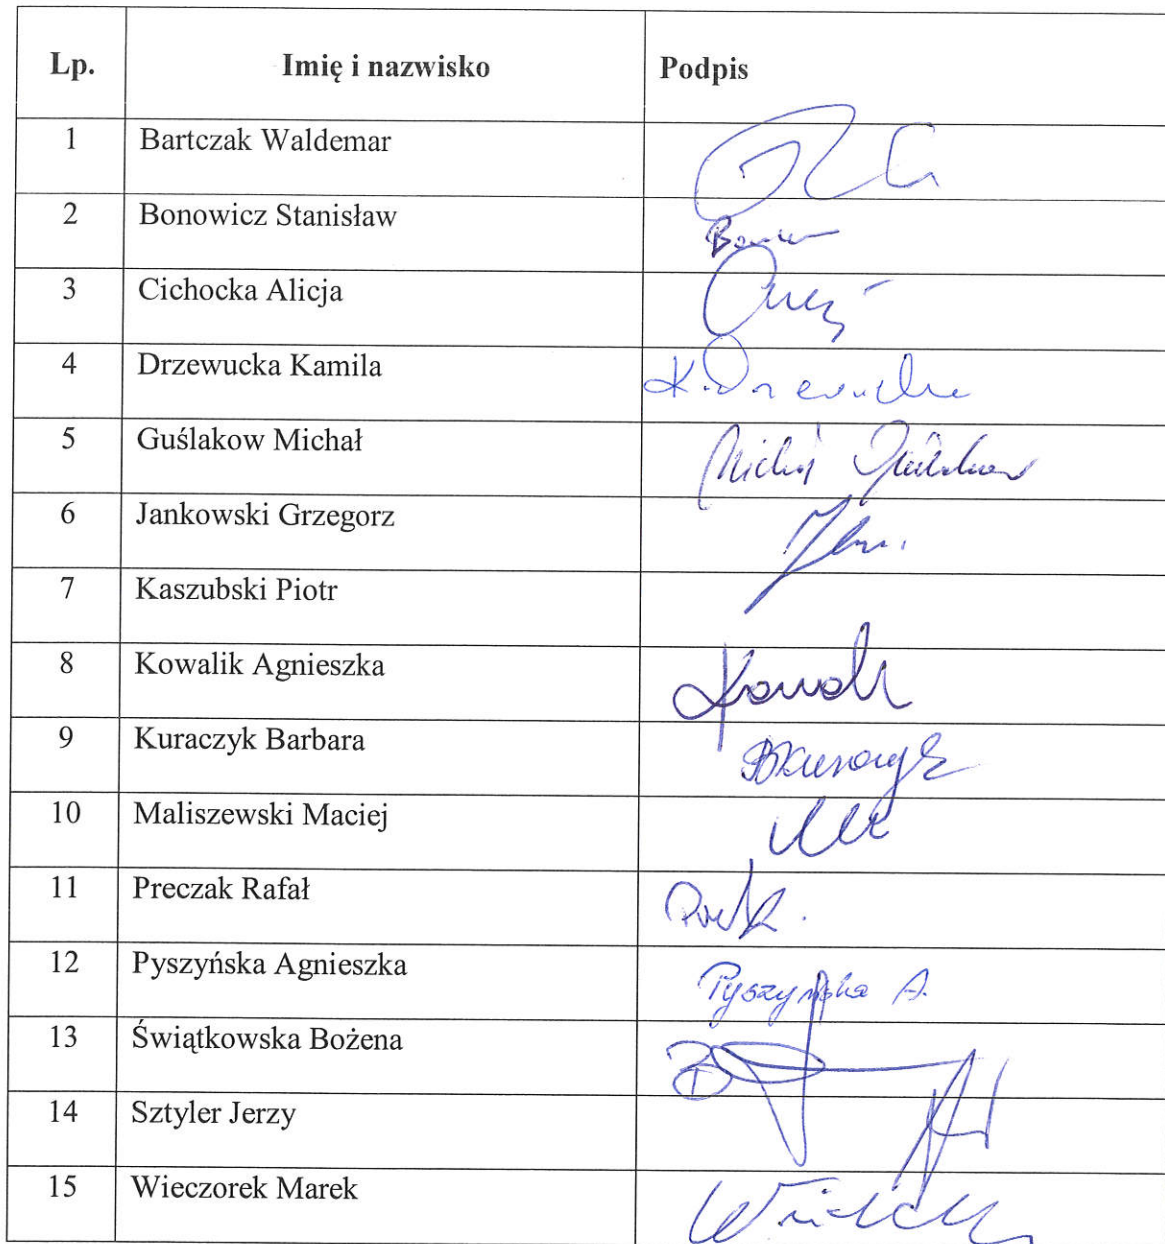 Lp. Imię i nazwisko Podpis
1 Bartczak Waldemar
2 Bonowicz Stanisław
3 Cichocka Alicja
4 Drzewucka Kamila K. Drzewucka
5 Guślakow Michał Michał Guślakow
6 Jankowski Grzegorz
7 Kaszubski Piotr
8 Kowalik Agnieszka Kowalik
9 Kuraczyk Barbara BKuraczyk
10 Maliszewski Maciej
11 Preczak Rafał
12 Pyszyńska Agnieszka Pyszyńska A.
13 Świątkowska Bożena
14 Sztyler Jerzy
15 Wieczorek Marek